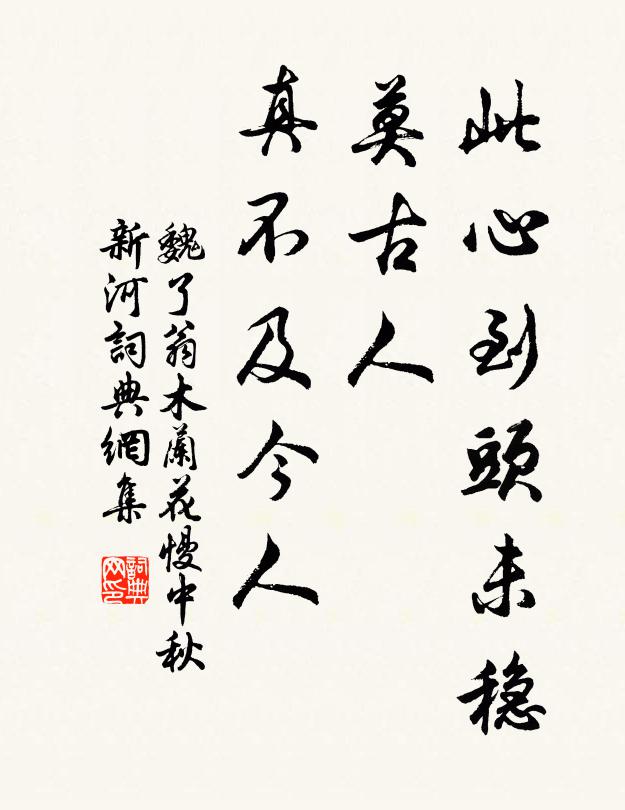 此心到頭未穩
莫古人
真不及今人
魏了翁木蘭花慢中秋
新河詞典網集
詞典网印